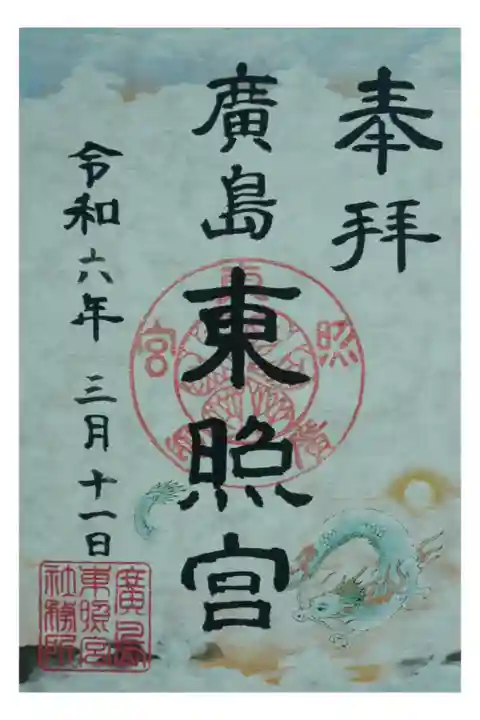 奉拝
廣島東照宮
令和六年三月十一日
東照宮廣島
廣島
東照宮
社務所